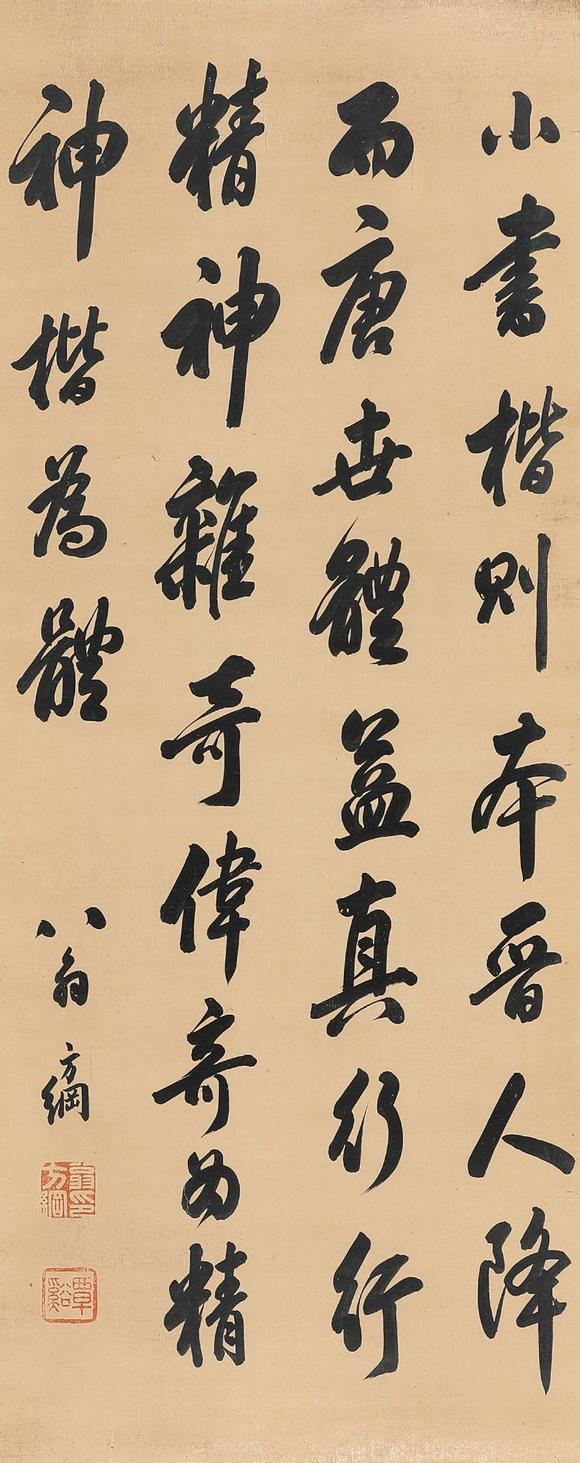 小書楷則本晉人降
而唐世體益真行行
精神雜奇偉精
神楷為體
八翁方綱
翁方綱印
覃谿